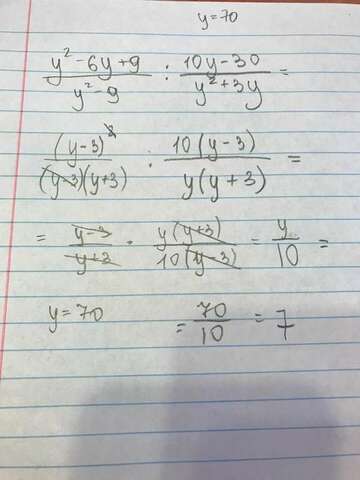 y=70
(y²-6y+9)/(y²-9) : (10y-30)/(y²+3y) =
(y-3)²/((y-3)(y+3)) : 10(y-3)/(y(y+3)) =
= (y-3)/(y+3) · y(y+3)/(10(y-3)) = y/10 =
y=70 = 70/10 = 7